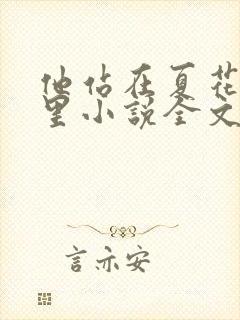 他站在夏花
里小说全文
言亦安